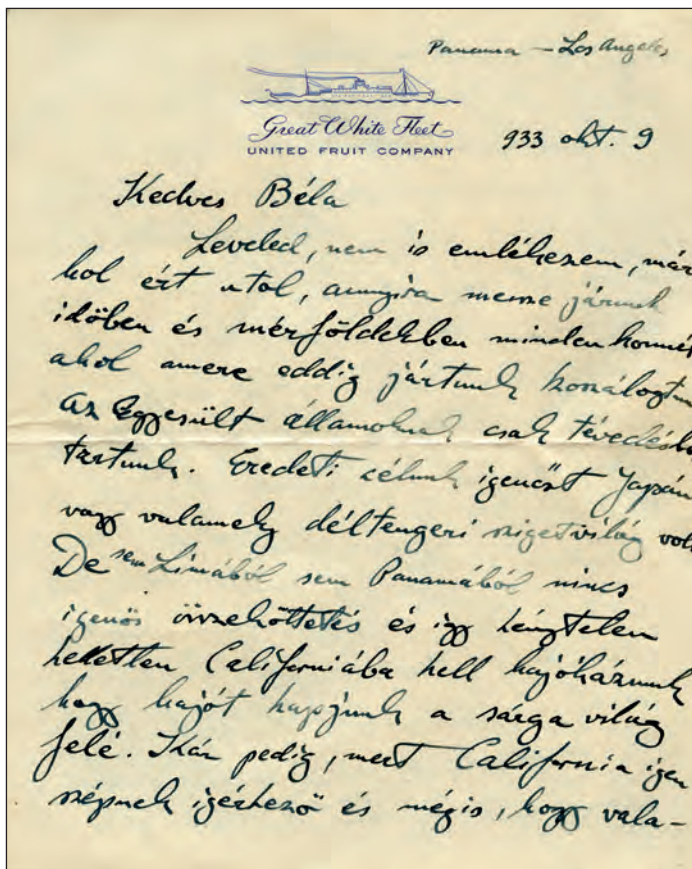 Panama — Los Angeles
Great White Fleet
UNITED FRUIT COMPANY
933 okt. 9
Kedves Béla
Leveled, nem is emlékezem, már
hol ért utol, annyira messze járunk
időben és mérföldekben minden
ahol amere eddig jártunk
Az Egyesült államoknak csak
tartunk. Eredeti célunk Japán
vagy valamely déltengeri szigetvilág volt
De sem Limából sem Panamából nincs
igenös összeköttetés és igy kénytelen
kelletlen Californiába kell hajóháznunk
hogy hajót kapjunk a sárga világ
felé. Kár pedig, mert California igen
szépnek igérkező és mégis, hogy vala-